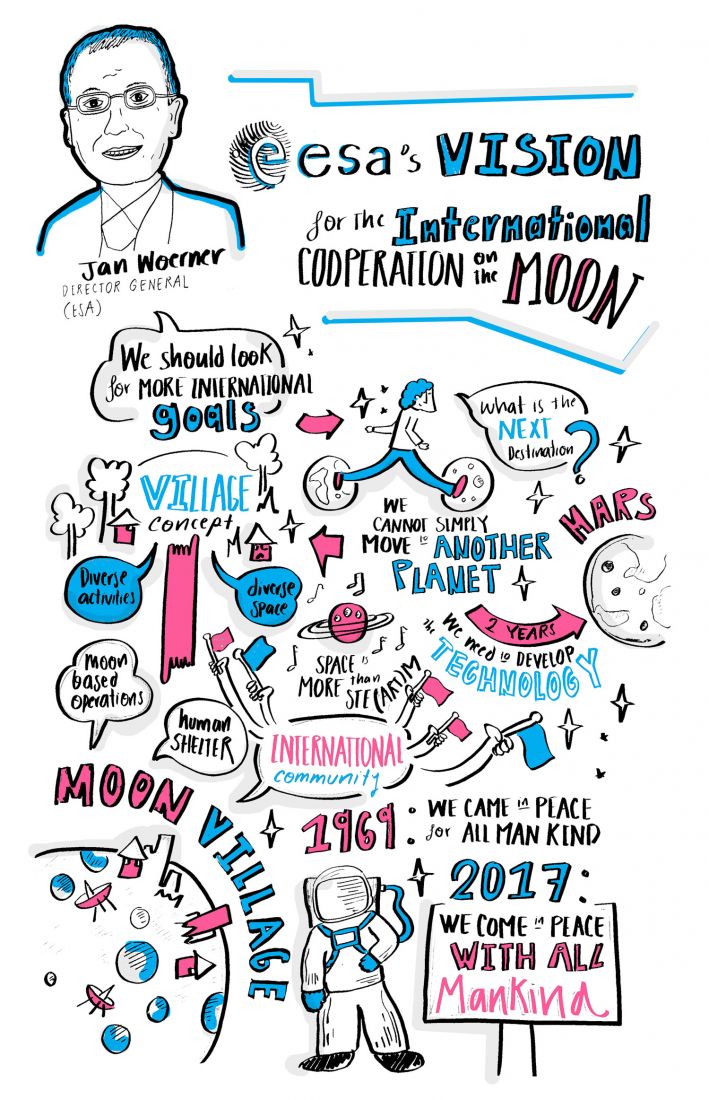 esa's VISION
for the International
COOPERATION on the MOON
Jan Woerner
DIRECTOR GENERAL
(ESA)
We should look
for MORE INTERNATIONAL
goals
What is the
NEXT
Destination
?
VILLAGE
concept
WE
CANNOT SIMPLY
MOVE to ANOTHER
PLANET
MARS
Diverse
activities
diverse
space
2 YEARS
We need to DEVELOP
the TECHNOLOGY
SPACE is
MORE than
STE(ART)M
moon
based
operations
human
SHELTER
INTERNATIONAL
community
MOON VILLAGE
1969: WE CAME in PEACE
for ALL MAN KIND
2017:
WE COME in PEACE
WITH ALL
Mankind